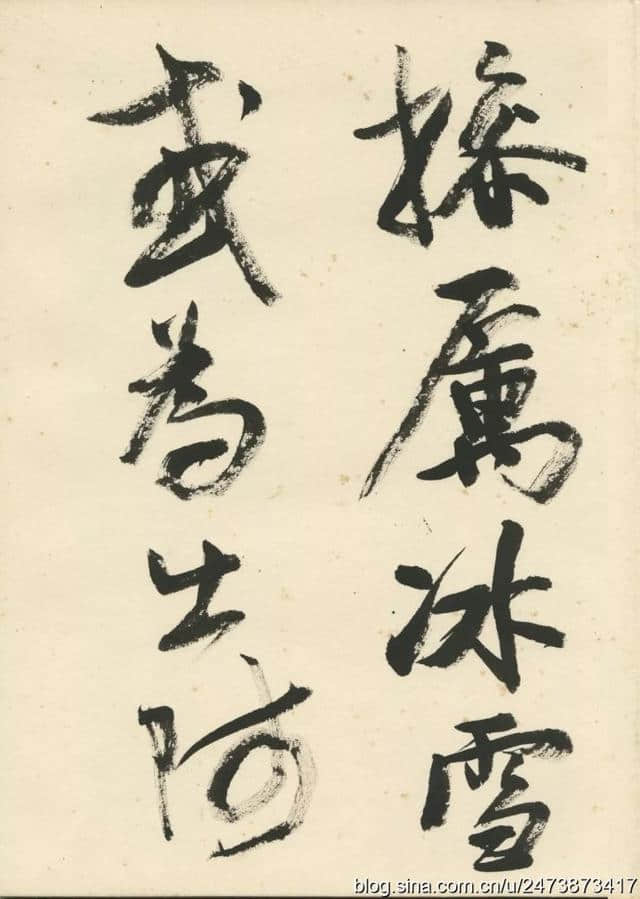 操厲冰雪
或為出師
blog.sina.com.cn/u/2473873417